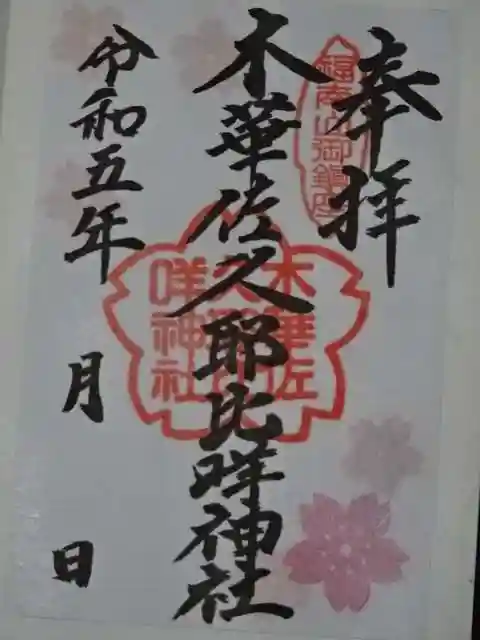 奉拝
福南山御鎮座
木華佐久耶比咩神社
木華佐
久耶比
咩神社
令和五年 月 日